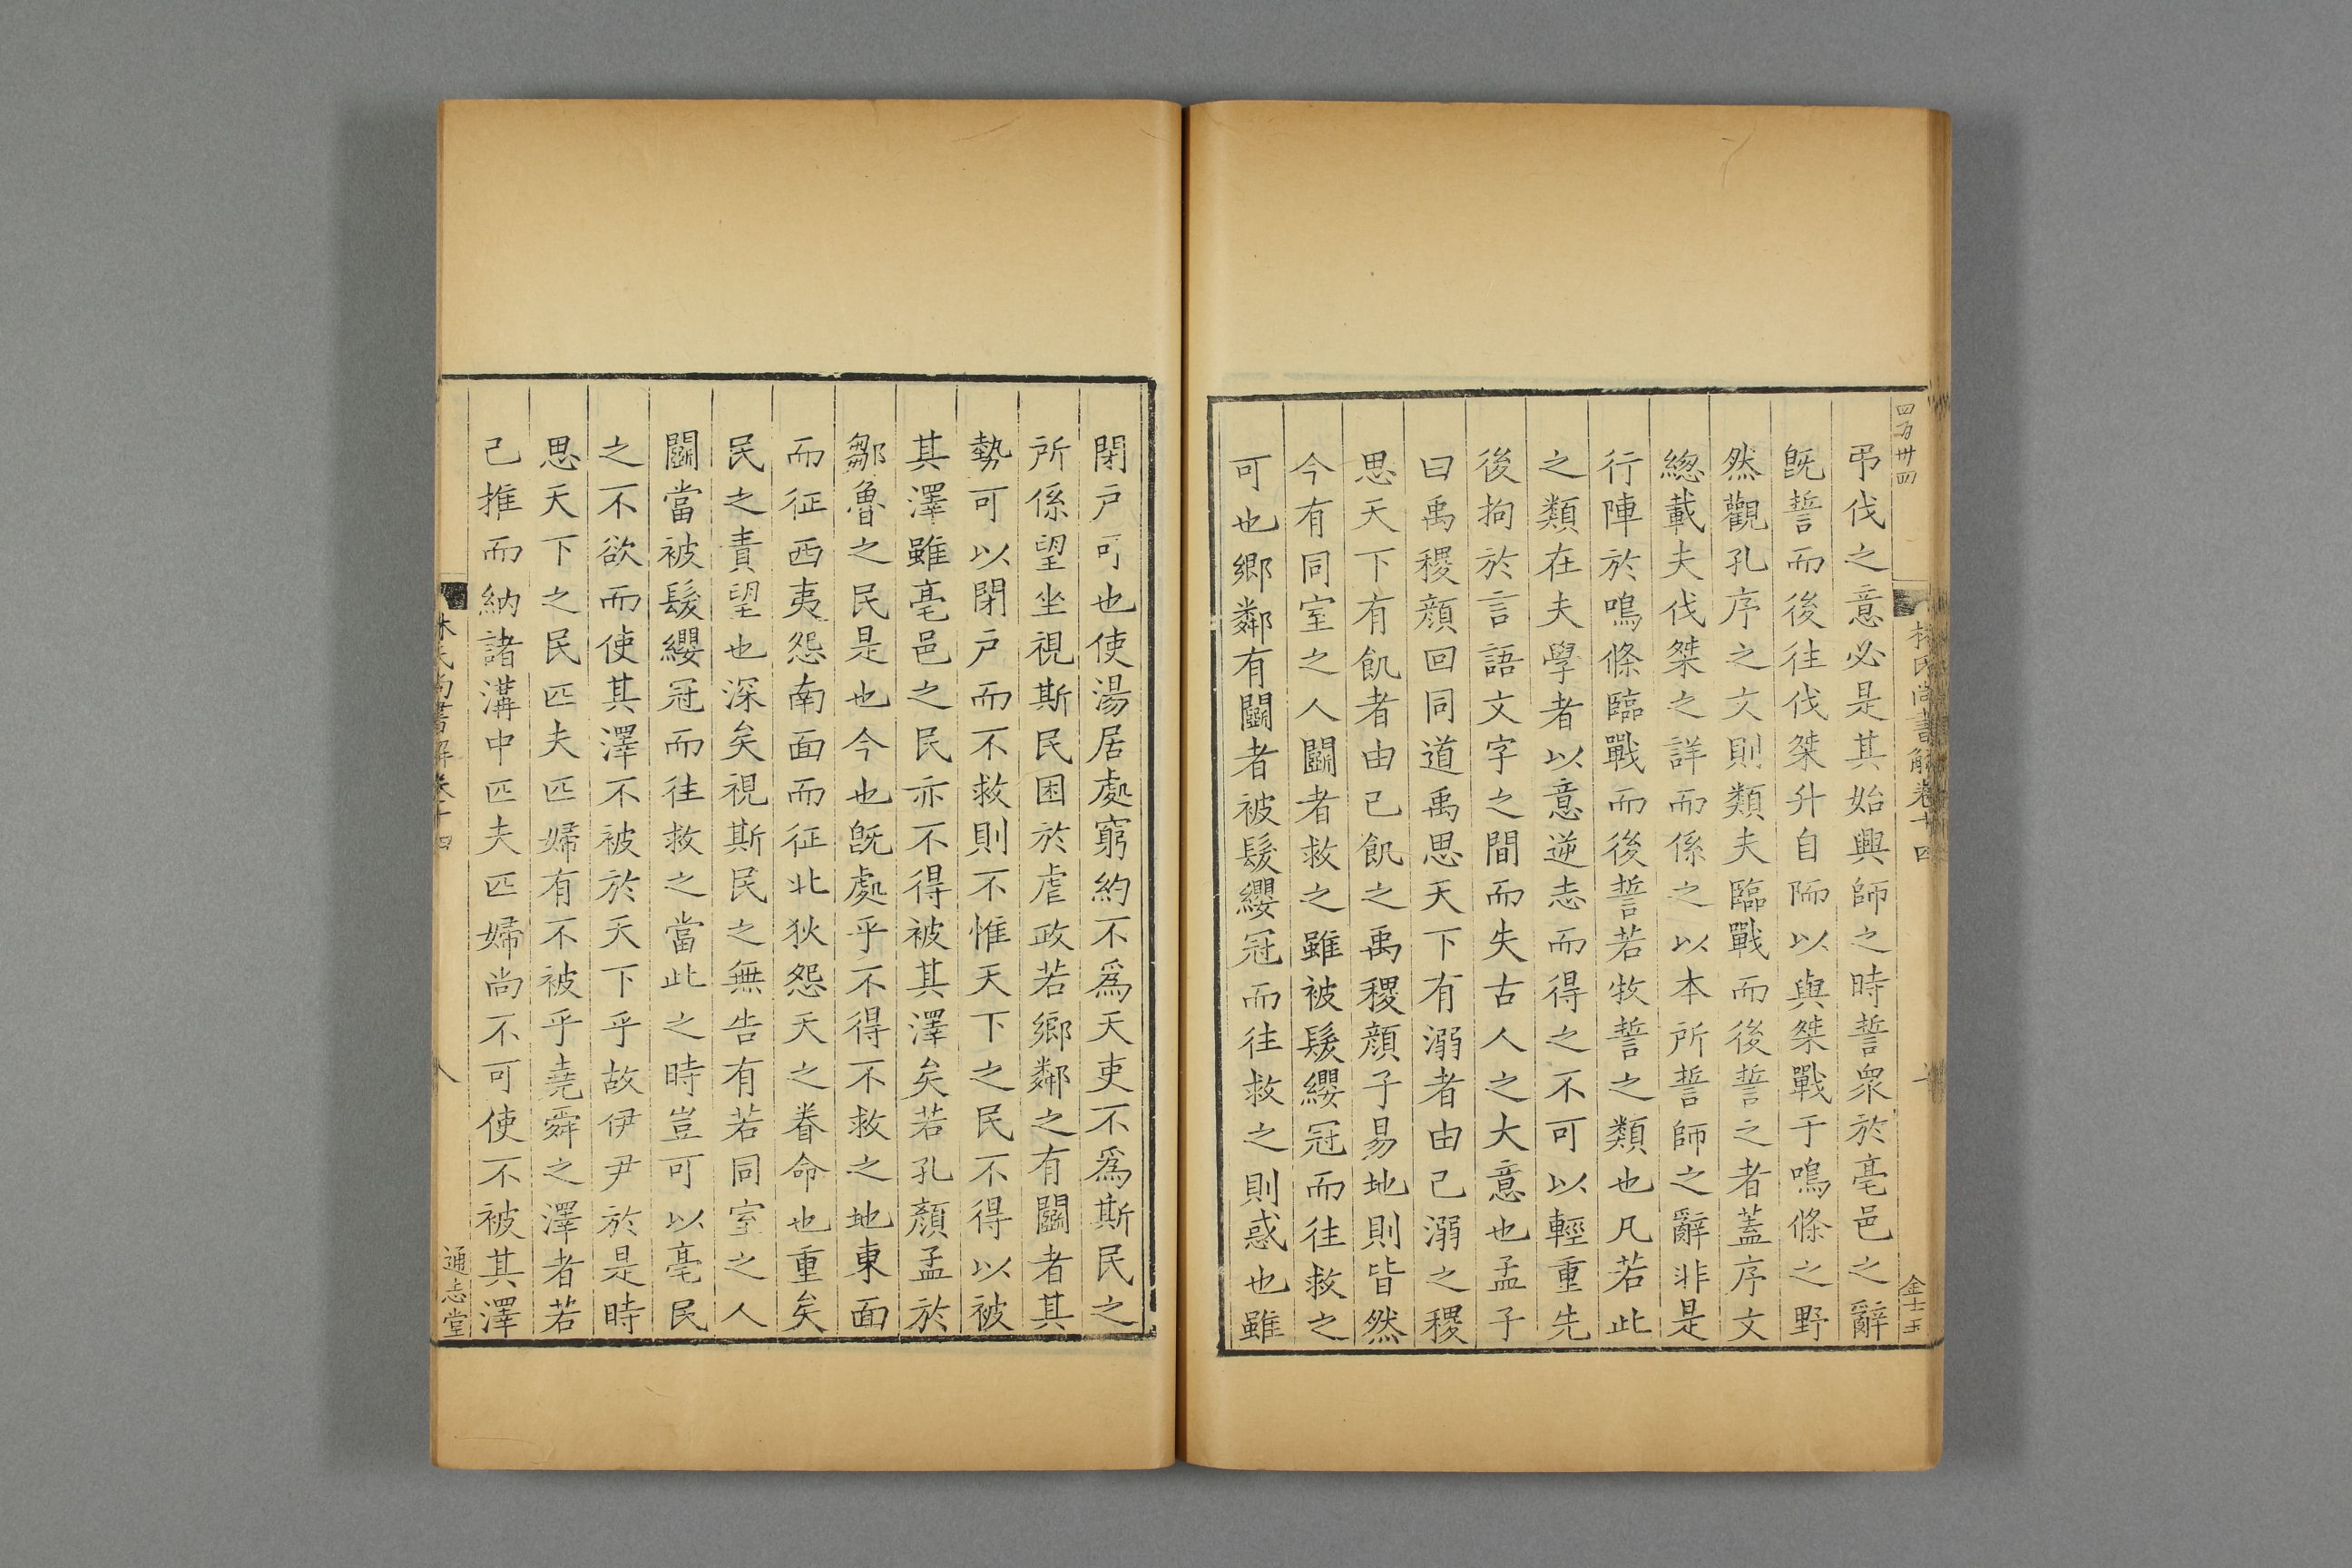 四百卅四
林氏尚書解卷十四
金士玉
弔伐之意必是其始興師之時誓衆於亳邑之辭
旣誓而後往伐桀升自陑以與桀戰于鳴條之野
然觀孔序之文則類夫臨戰而後誓之者蓋序文
緫載夫伐桀之詳而係之以本所誓師之辭非是
行陣於鳴條臨戰而後誓若牧誓之類也凡若此
之類在夫學者以意逆志而得之不可以輕重先
後拘於言語文字之間而失古人之大意也孟子
曰禹稷顔回同道禹思天下有溺者由己溺之稷
思天下有飢者由己飢之禹稷顔子易地則皆然
今有同室之人鬭者救之雖被髮纓冠而往救之
可也鄉鄰有鬭者被髮纓冠而往救之則惑也雖
閉户可也使湯居處窮約不爲天吏不爲斯民之
所係望坐視斯民困於虐政若鄉鄰之有鬭者其
勢可以閉户而不救則不惟天下之民不得以被
其澤雖亳邑之民亦不得被其澤矣若孔顏孟於
鄒魯之民是也今也旣處乎不得不救之地東面
而征西夷怨南面而征北狄怨天之眷命也重矣
民之責望也深矣視斯民之無告有若同室之人
鬭當被髮纓冠而往救之當此之時豈可以亳民
之不欲而使其澤不被於天下乎故伊尹於是時
思天下之民匹夫匹婦有不被乎堯舜之澤者若
己推而納諸溝中匹夫匹婦尚不可使不被其澤
林氏尚書解卷十四
八
通志堂